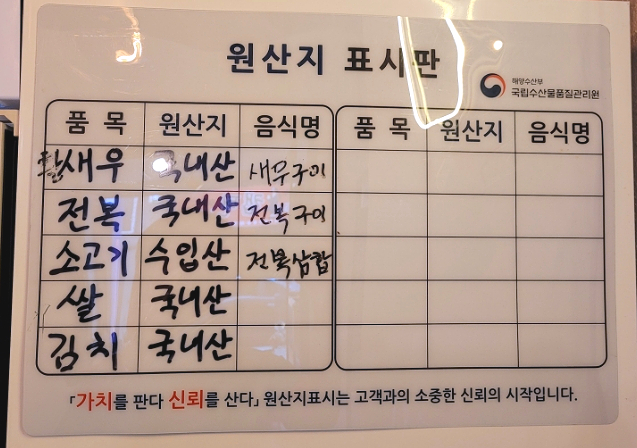 원산지 표시판
해양수산부
국립수산물품질관리원
품 목 원산지 음식명 품 목 원산지 음식명
흰새우 국내산 새우구이
전복 국내산 전복구이
소고기 수입산 전복삼합
쌀 국내산
김치 국내산
「가치를 판다 신뢰를 산다」 원산지표시는 고객과의 소중한 신뢰의 시작입니다.